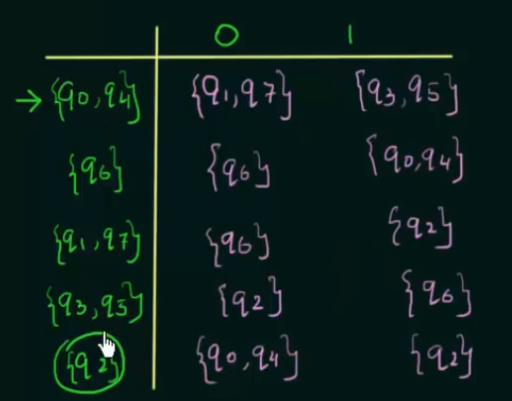 0 1
→ {q0,q4} {q1,q7} {q3,q5}
{q6} {q6} {q0,q4}
{q1,q7} {q6} {q2}
{q3,q5} {q2} {q6}
{q2} {q0,q4} {q2}